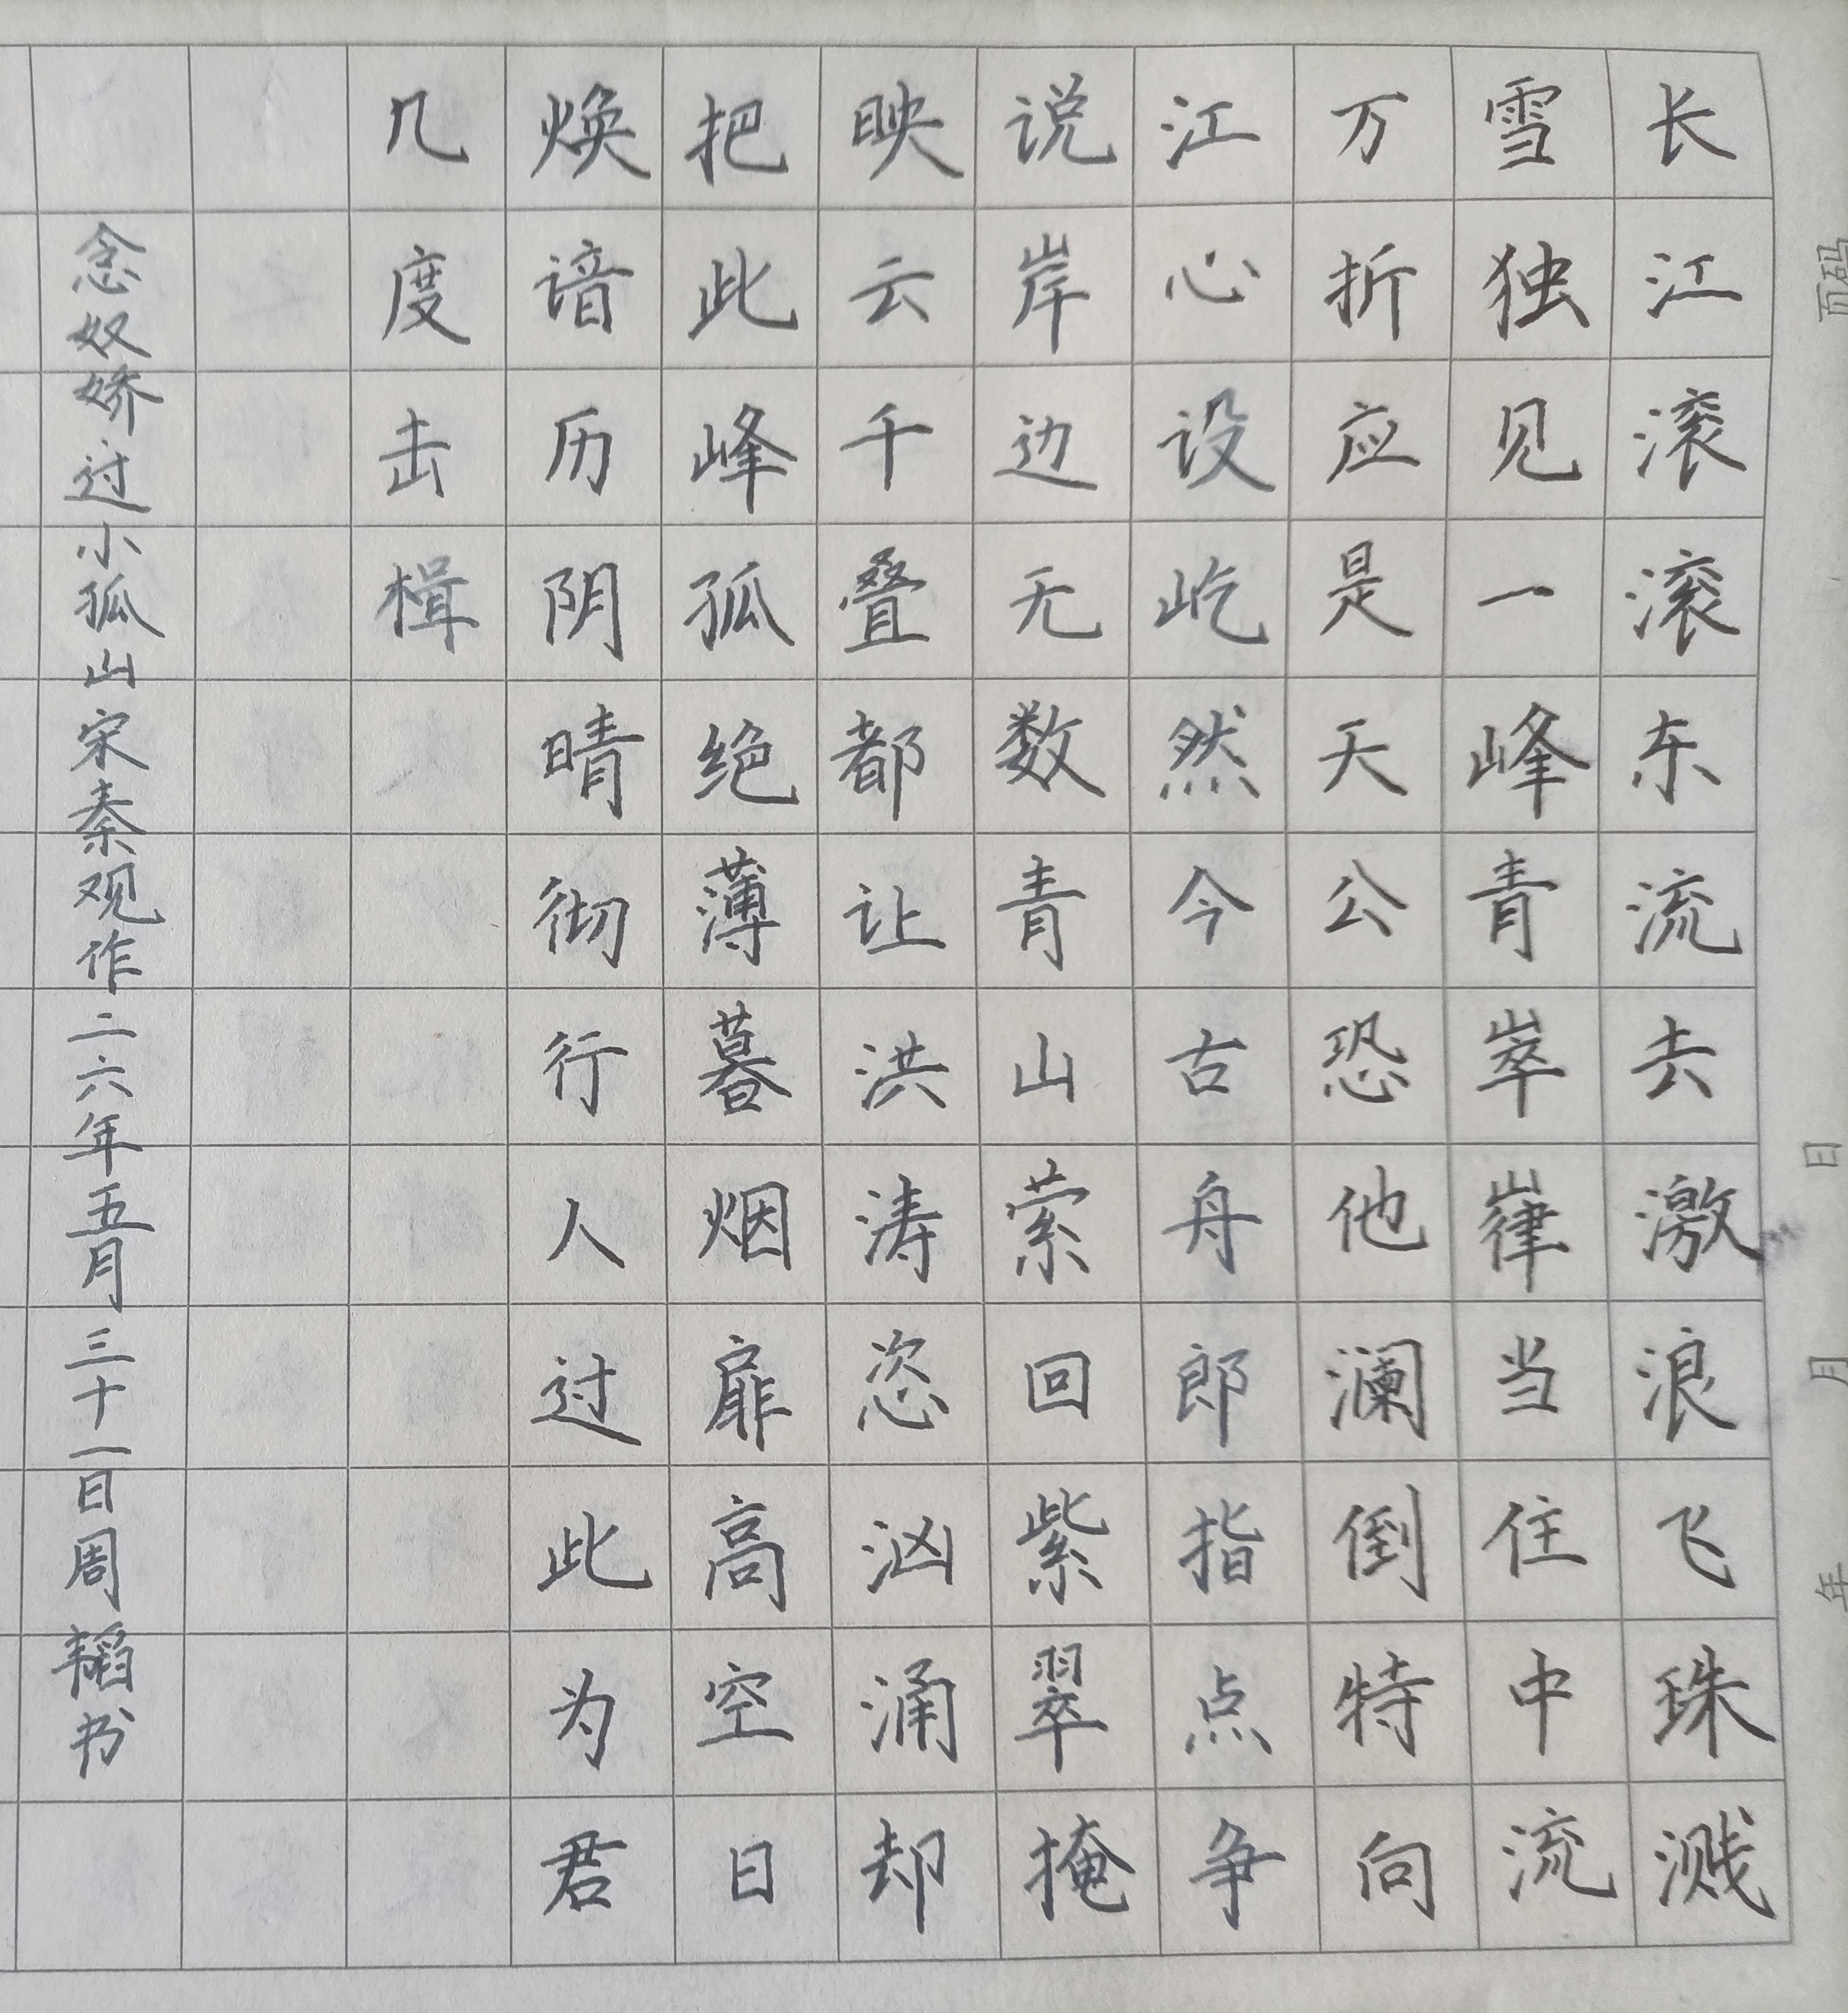 长江滚滚东流去激浪飞珠溅
雪独见一峰青崒嵂当住中流
万折应是天公恐他澜倒特向
江心设屹然今古舟郎指点争
说岸边无数青山萦回紫翠掩
映云千叠都让洪涛恣汹涌却
把此峰孤绝薄暮烟扉高空日
焕谙历阴晴彻行人过此为君
几度击楫
念奴娇过小孤山宋秦观作二六年五月三十一日周韬书
页码
日 月 年